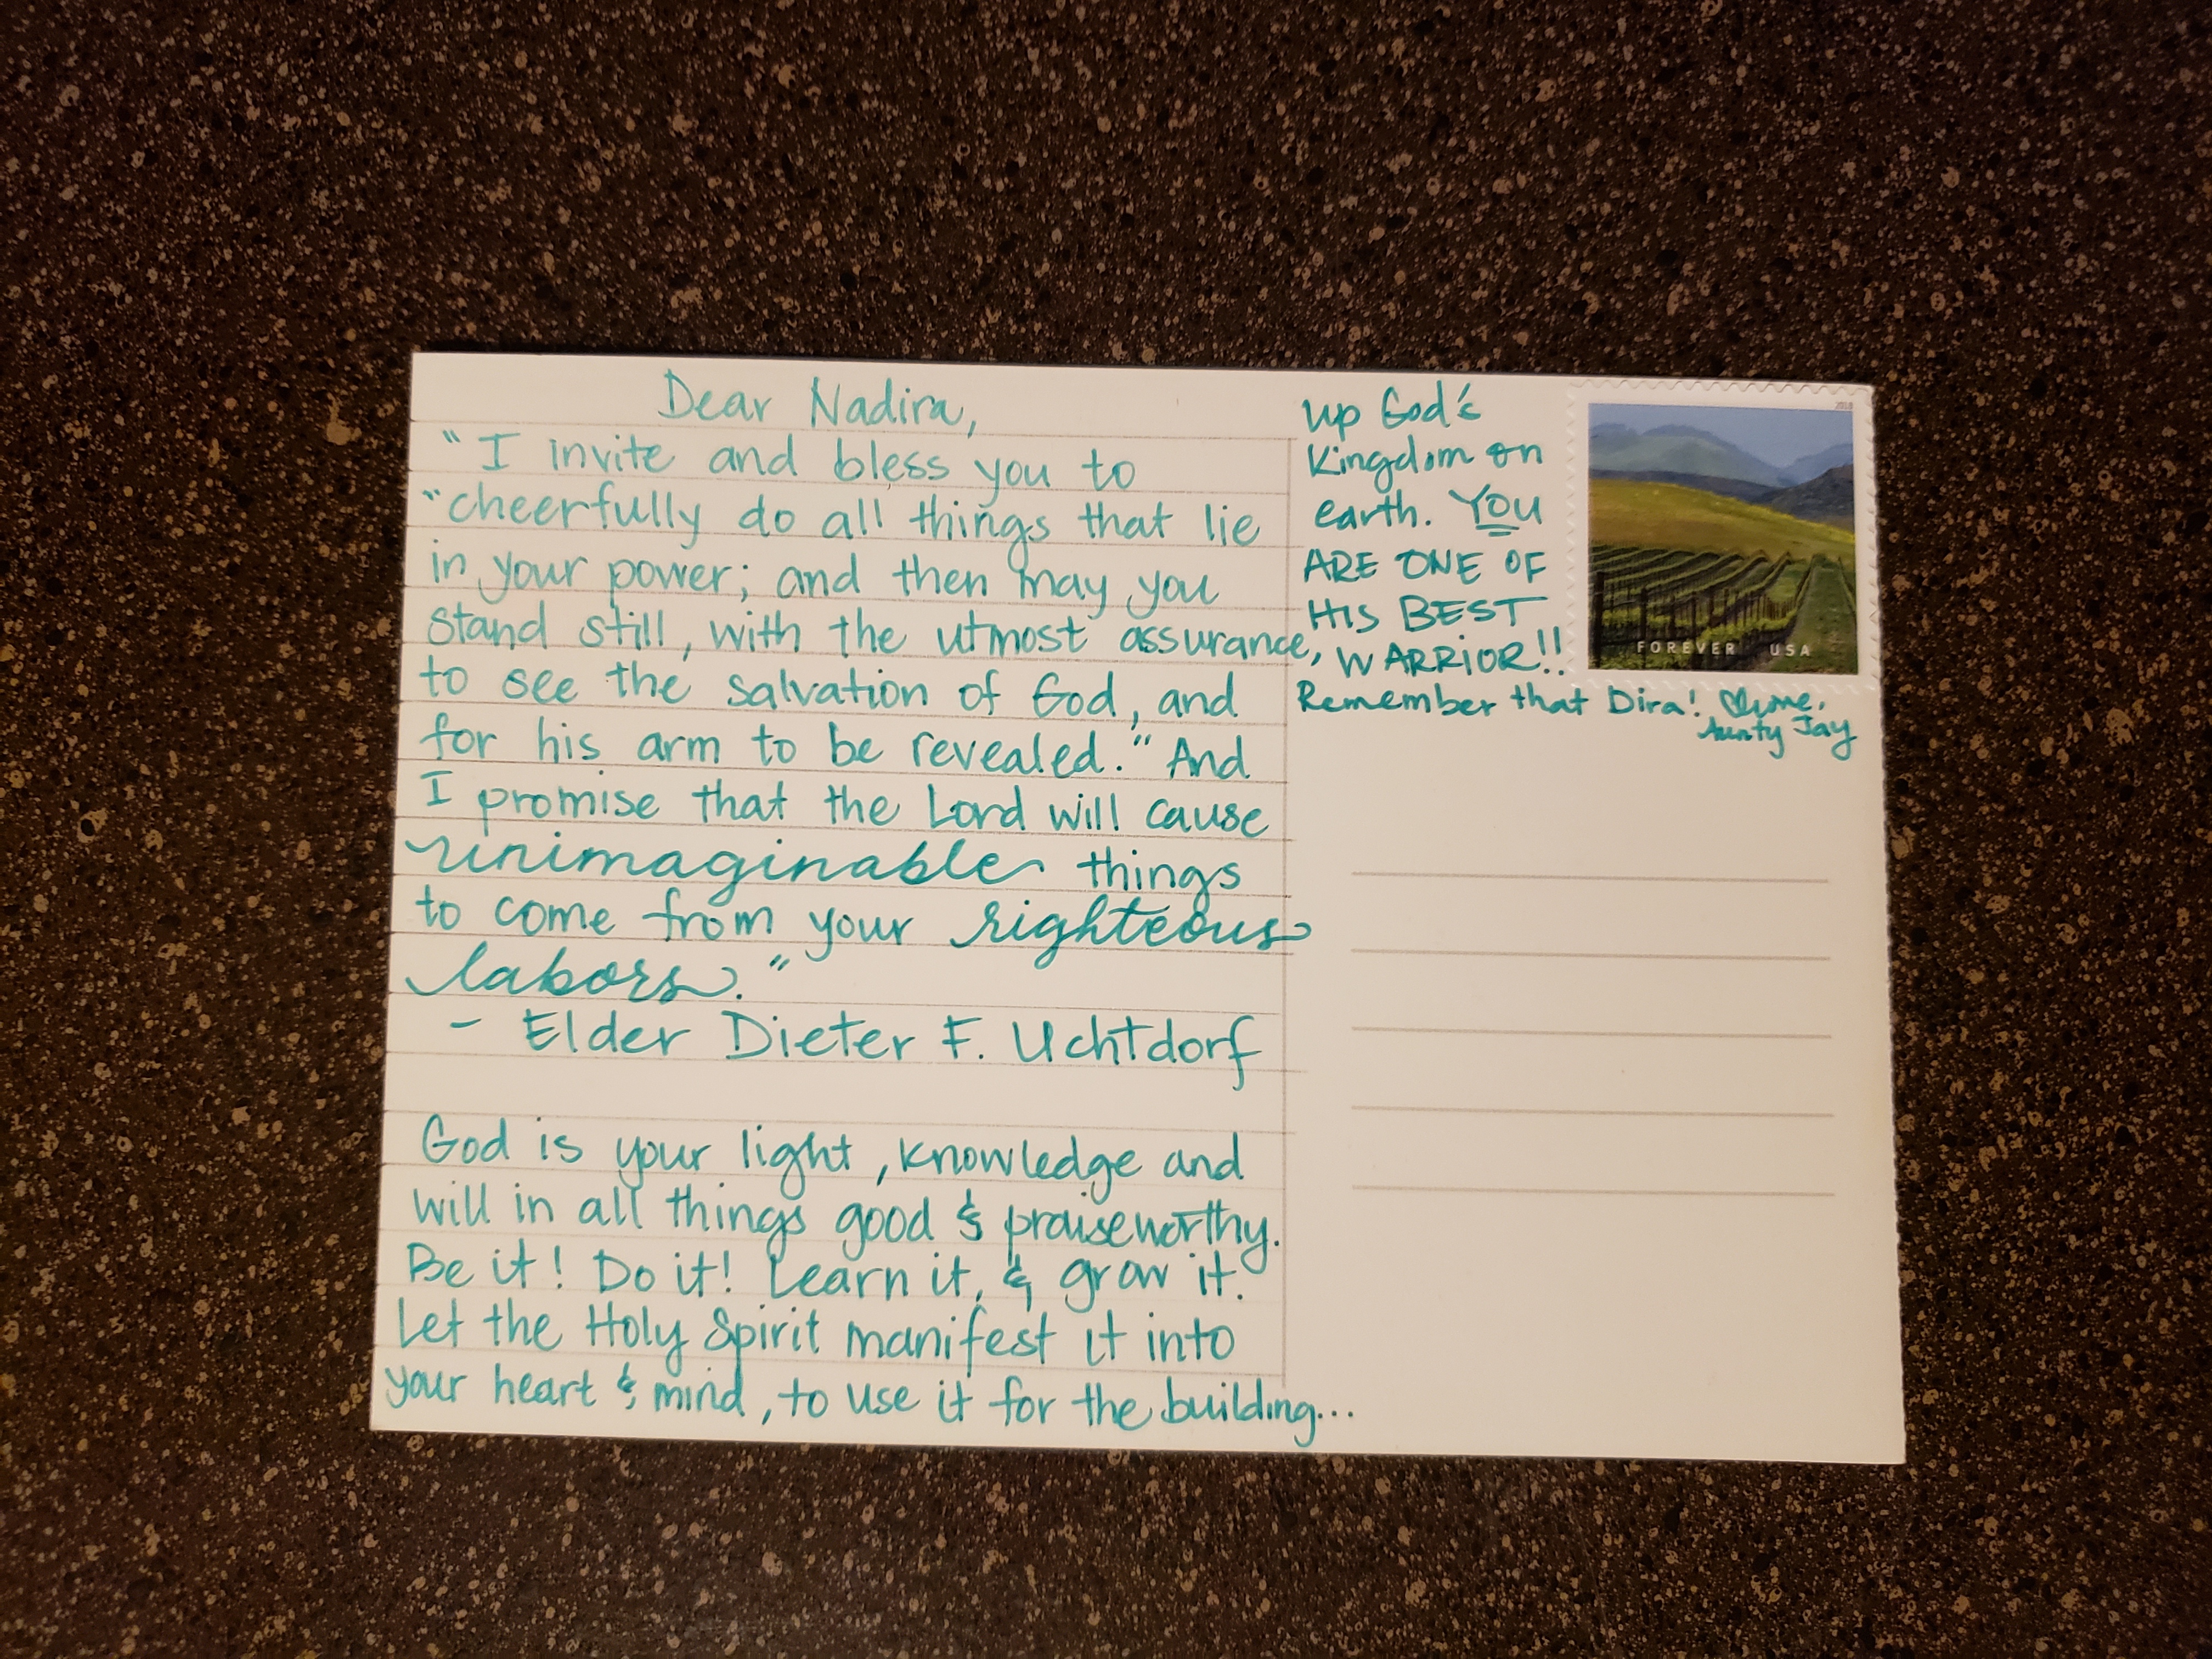 Dear Nadira,
"I invite and bless you to
"cheerfully do all things that lie
in your power; and then may you
stand still, with the utmost assurance,
to see the salvation of God, and
for his arm to be revealed." And
I promise that the Lord will cause
unimaginable things
to come from your righteous
labors."
- Elder Dieter F. Uchtdorf
God is your light, knowledge and
will in all things good & praiseworthy.
Be it! Do it! Learn it, & grow it.
Let the Holy Spirit manifest it into
your heart & mind, to use it for the building...
up God's
Kingdom on
earth. YOU
ARE ONE OF
HIS BEST
WARRIOR!!
Remember that Dira! ♡ me,
Aunty Jay
2018
FOREVER USA